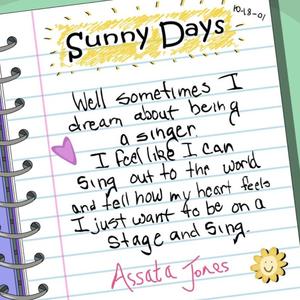 10-18-01
Sunny Days
Well sometimes I
dream about being
a singer.
I feel like I can
Sing out to the world
and tell how my heart feels
I just want to be on a
Stage and Sing.
Assata Jones